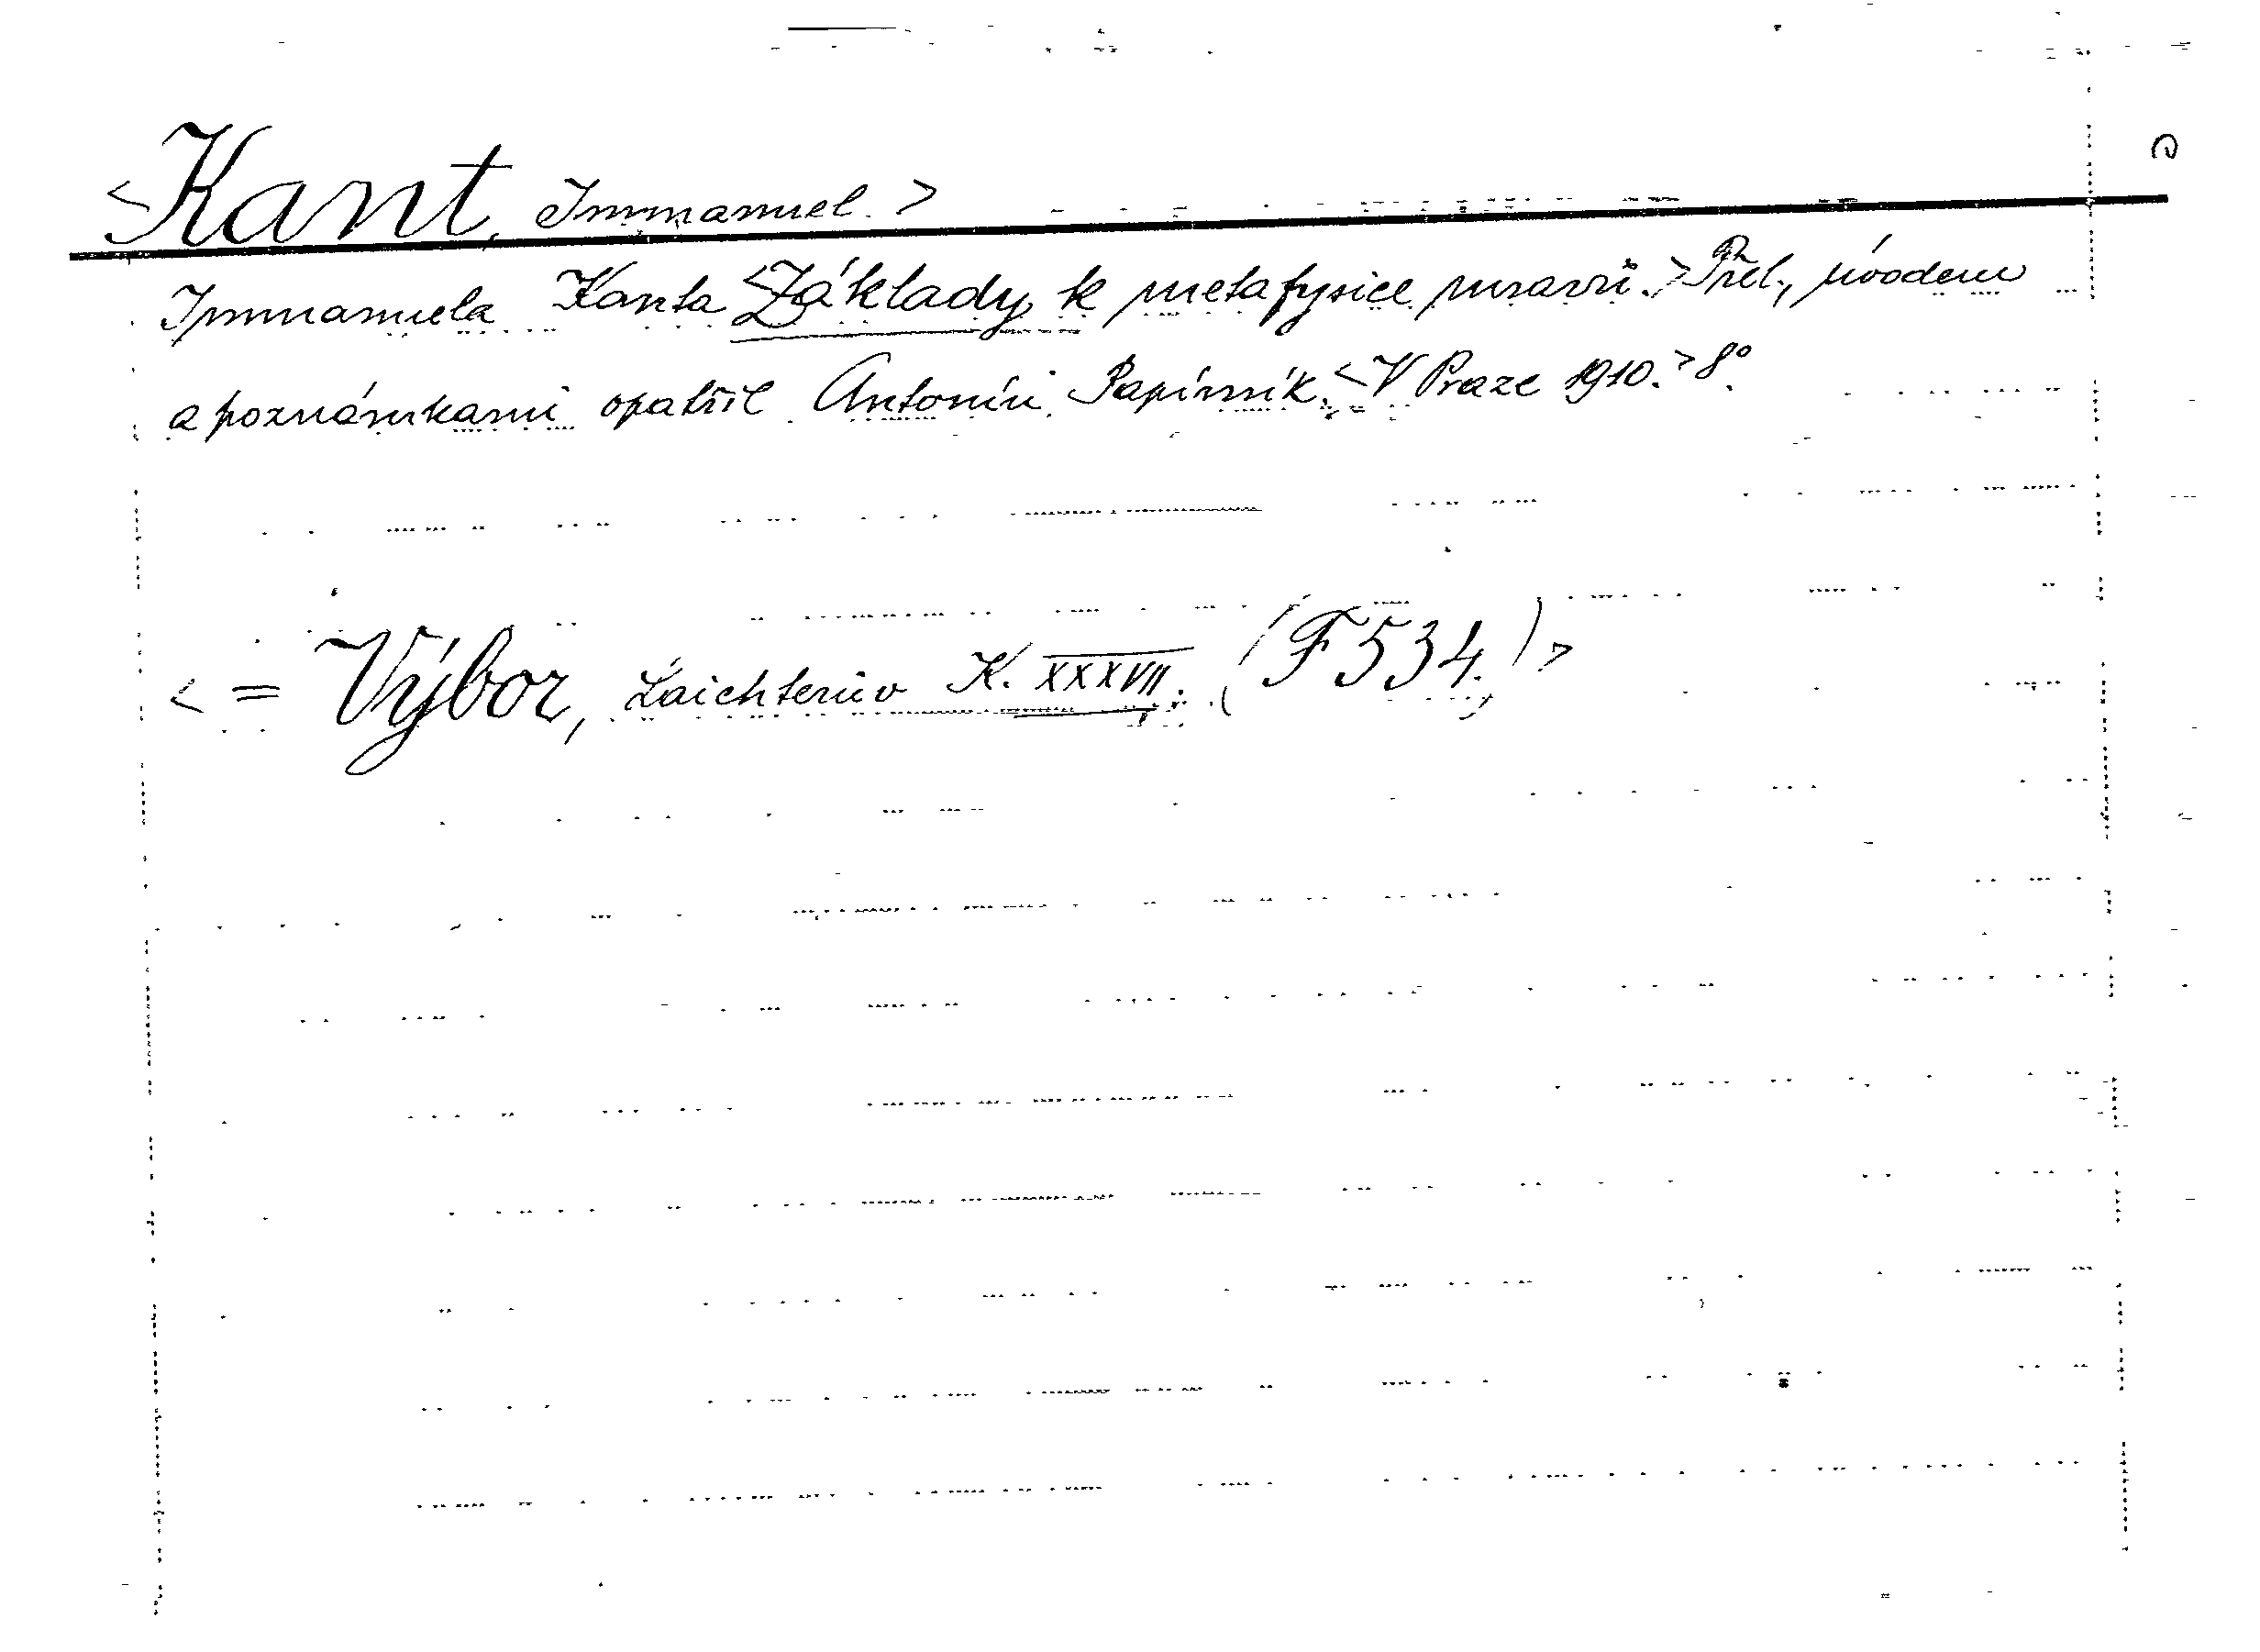 <Kant, Immanuel.>
Immanuela Kanta <Základy k metafysice mravů.> Přel., úvodem
a poznámkami opatřil Antonín Papírník. <V Praze 1910.> 8°.
<= Výbor, Laichterův K. XXXVII. (F 534.)>